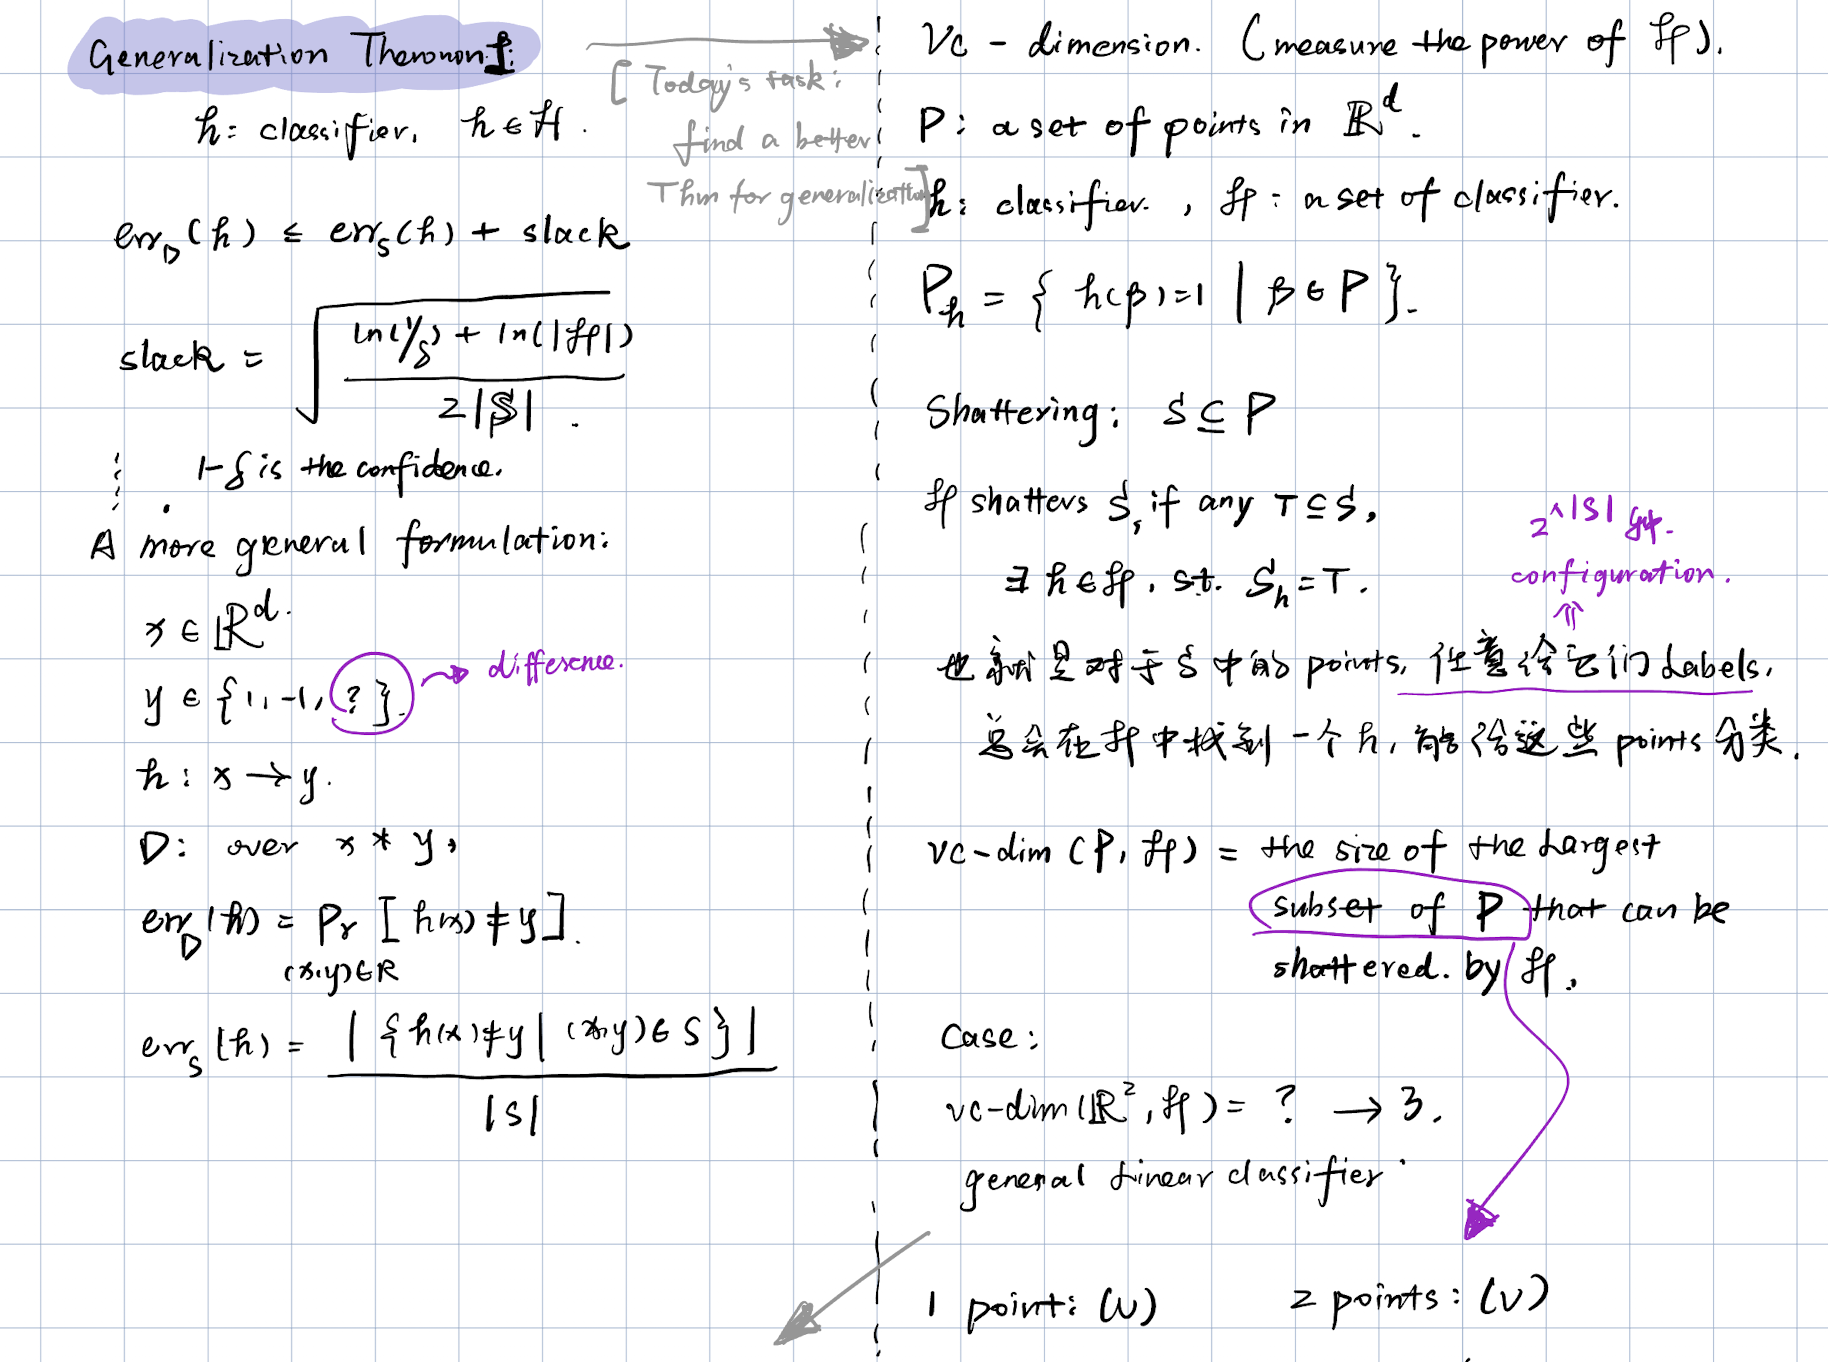 Generalization Theronon 1:
h: classifier, h ∈ H.
err_D(h) ≤ err_S(h) + slack
slack = √((ln(1/δ) + ln(|H|)) / 2|S|).
1-δ is the confidence.
A more general formulation:
x ∈ ℝ^d.
y ∈ {1, -1, ?}. → difference.
h: x → y.
D: over x * y,
err_D(h) = Pr [h(x) ≠ y].
(x,y)∈R
err_S(h) = |{h(x)≠y | (x,y) ∈ S}| / |S|
[Today's task:
find a better
Thm for generalization]
Vc - dimension. (measure the power of H).
P: a set of points in ℝ^d.
h: classifier. , H: a set of classifier.
P_h = { h(p)=1 | p ∈ P }.
Shattering: S ⊆ P
H shatters S, if any T ⊆ S,
∃ h ∈ H, s.t. S_h = T.
2^|S|
configuration.
⇑
也就是对于S中的 points, 任意给它们 Labels,
总会在H中找到一个h, 能给这些 points 分类.
vc-dim (P, H) = the size of the Largest
subset of P that can be
shattered. by H.
Case:
vc-dim(ℝ², H) = ? → 3.
general Linear classifier.
1 point: (√) 2 points: (√)